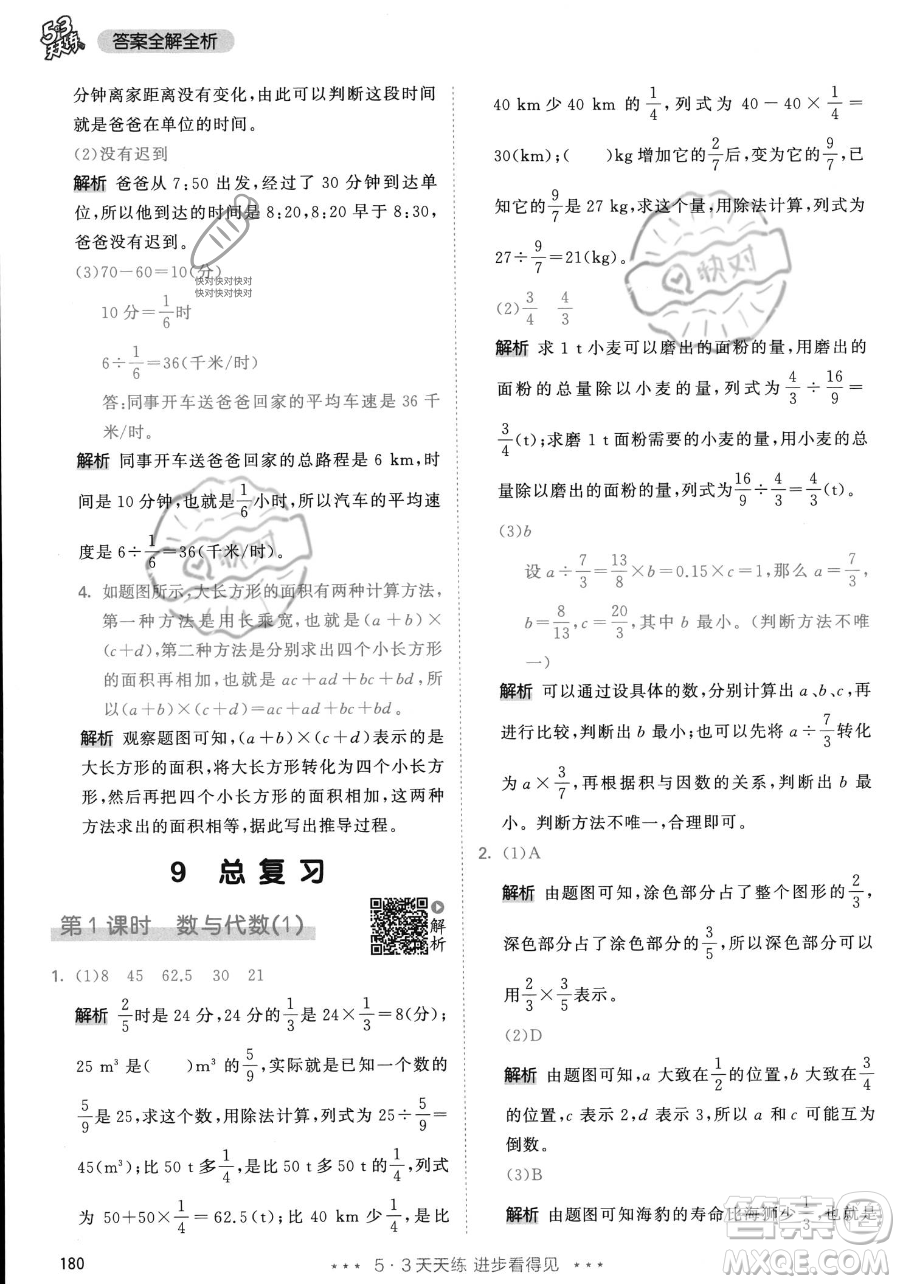 5·3
天天练
答案全解全析
分钟离家距离没有变化，由此可以判断这段时间
就是爸爸在单位的时间。
(2)没有迟到
解析 爸爸从 7:50 出发，经过了 30 分钟到达单
位，所以他到达的时间是 8:20，8:20 早于 8:30，
爸爸没有迟到。
(3)70－60＝10(分)
快对快对快对
快对快对快对
10 分＝1/6时
6÷1/6＝36(千米/时)
答：同事开车送爸爸回家的平均车速是 36 千
米/时。
解析 同事开车送爸爸回家的总路程是 6 km，时
间是 10 分钟，也就是1/6小时，所以汽车的平均速
度是 6÷1/6＝36(千米/时)。
4. 如题图所示，大长方形的面积有两种计算方法，
第一种方法是用长乘宽，也就是(a＋b)×
(c＋d)，第二种方法是分别求出四个小长方形
的面积再相加，也就是 ac＋ad＋bc＋bd，所
以(a＋b)×(c＋d)＝ac＋ad＋bc＋bd。
解析 观察题图可知，(a＋b)×(c＋d)表示的是
大长方形的面积，将大长方形转化为四个小长方
形，然后把这四个小长方形的面积相加，两种
方法求出的面积相等，据此写出推导过程。
9 总复习
第 1 课时 数与代数(1)
解析
1. (1)8 45 62.5 30 21
解析 2/5时是 24 分，24 分的1/3是 24×1/3＝8(分)；
25 m³ 是( )m³ 的5/9，实际就是已知一个数的
5/9是 25，求这个数，用除法计算，列式为 25÷5/9＝
45(m³)；比 50 t 多1/4，是比 50 t 多 50 t 的1/4，列式
为 50＋50×1/4＝62.5(t)；比 40 km 少1/4，是比
40 km 少 40 km 的1/4，列式为 40－40×1/4＝
30(km)；( )kg 增加它的2/7后，变为它的9/7，已
知它的9/7是 27 kg，求这个量，用除法计算，列式为
27÷9/7＝21(kg)。
快对
(2)3/4 4/3
解析 求 1 t 小麦可以磨出的面粉的量，用磨出的
面粉的总量除以小麦的量，列式为4/3÷16/9＝
3/4(t)；求磨 1 t 面粉需要的小麦的量，用小麦的总
量除以磨出的面粉的量，列式为16/9÷4/3＝4/3(t)。
(3)b
设 a÷7/3＝13/8×b＝0.15×c＝1，那么 a＝7/3，
b＝8/13，c＝20/3，所以 b 最小。(判断方法不唯
一)
解析 可以先设具体的数，分别计算出 a、b、c，再
进行比较，判断出 b 最小；也可以先将 a÷7/3转化
为 a×3/7，再根据积与因数的关系，判断出 b 最
小。判断方法不唯一，合理即可。
2. (1)A
解析 由题图可知，涂色部分占了整个图形的2/3，
深色部分占了涂色部分的3/5，所以深色部分可以
用2/3×3/5表示。
(2)D
解析 由题图可知，a 大致在1/2的位置，b 大致在3/4
的位置，c 表示 2，d 表示 3，所以 a 和 c 可能互为
倒数。
(3)B
解析 由题图可知海豹的寿命比海狮少1/4，也就是
快对
答案圈
180
5·3天天练 进步看得见